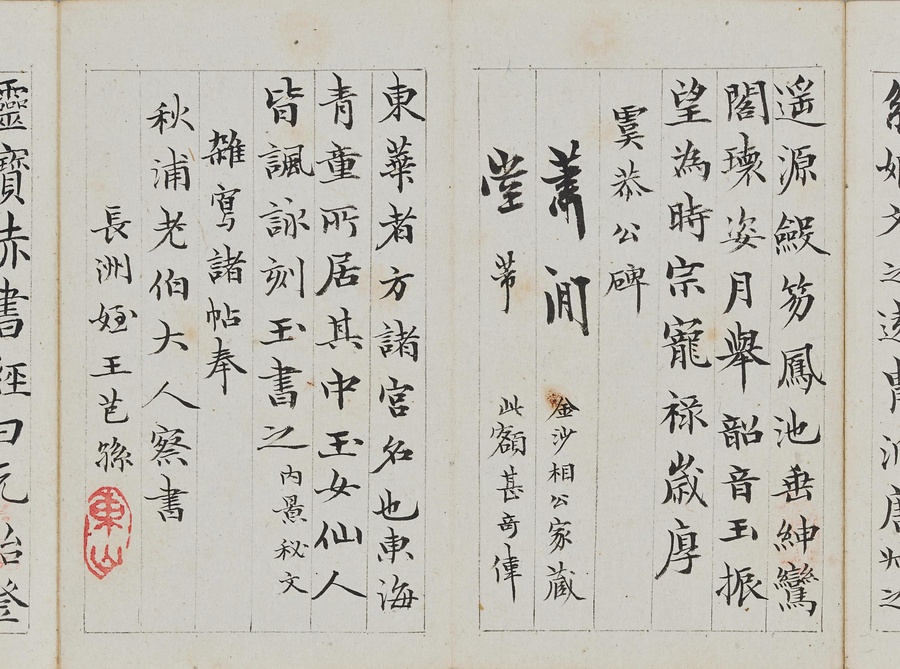 遥源斂笏鳳池垂紳鸞
閣瓌姿月舉韶音玉振
望為時宗寵禄歲厚
虞恭公碑
蕭閒 金沙相公家藏
堂芾 此額甚奇偉
東華者方諸宮名也東海
青童所居其中玉女仙人
皆諷詠刻玉書之 内景秘文
雜寫諸帖奉
秋浦老伯大人察書
長洲姪王芑孫
東山
靈寶赤書經曰元始登